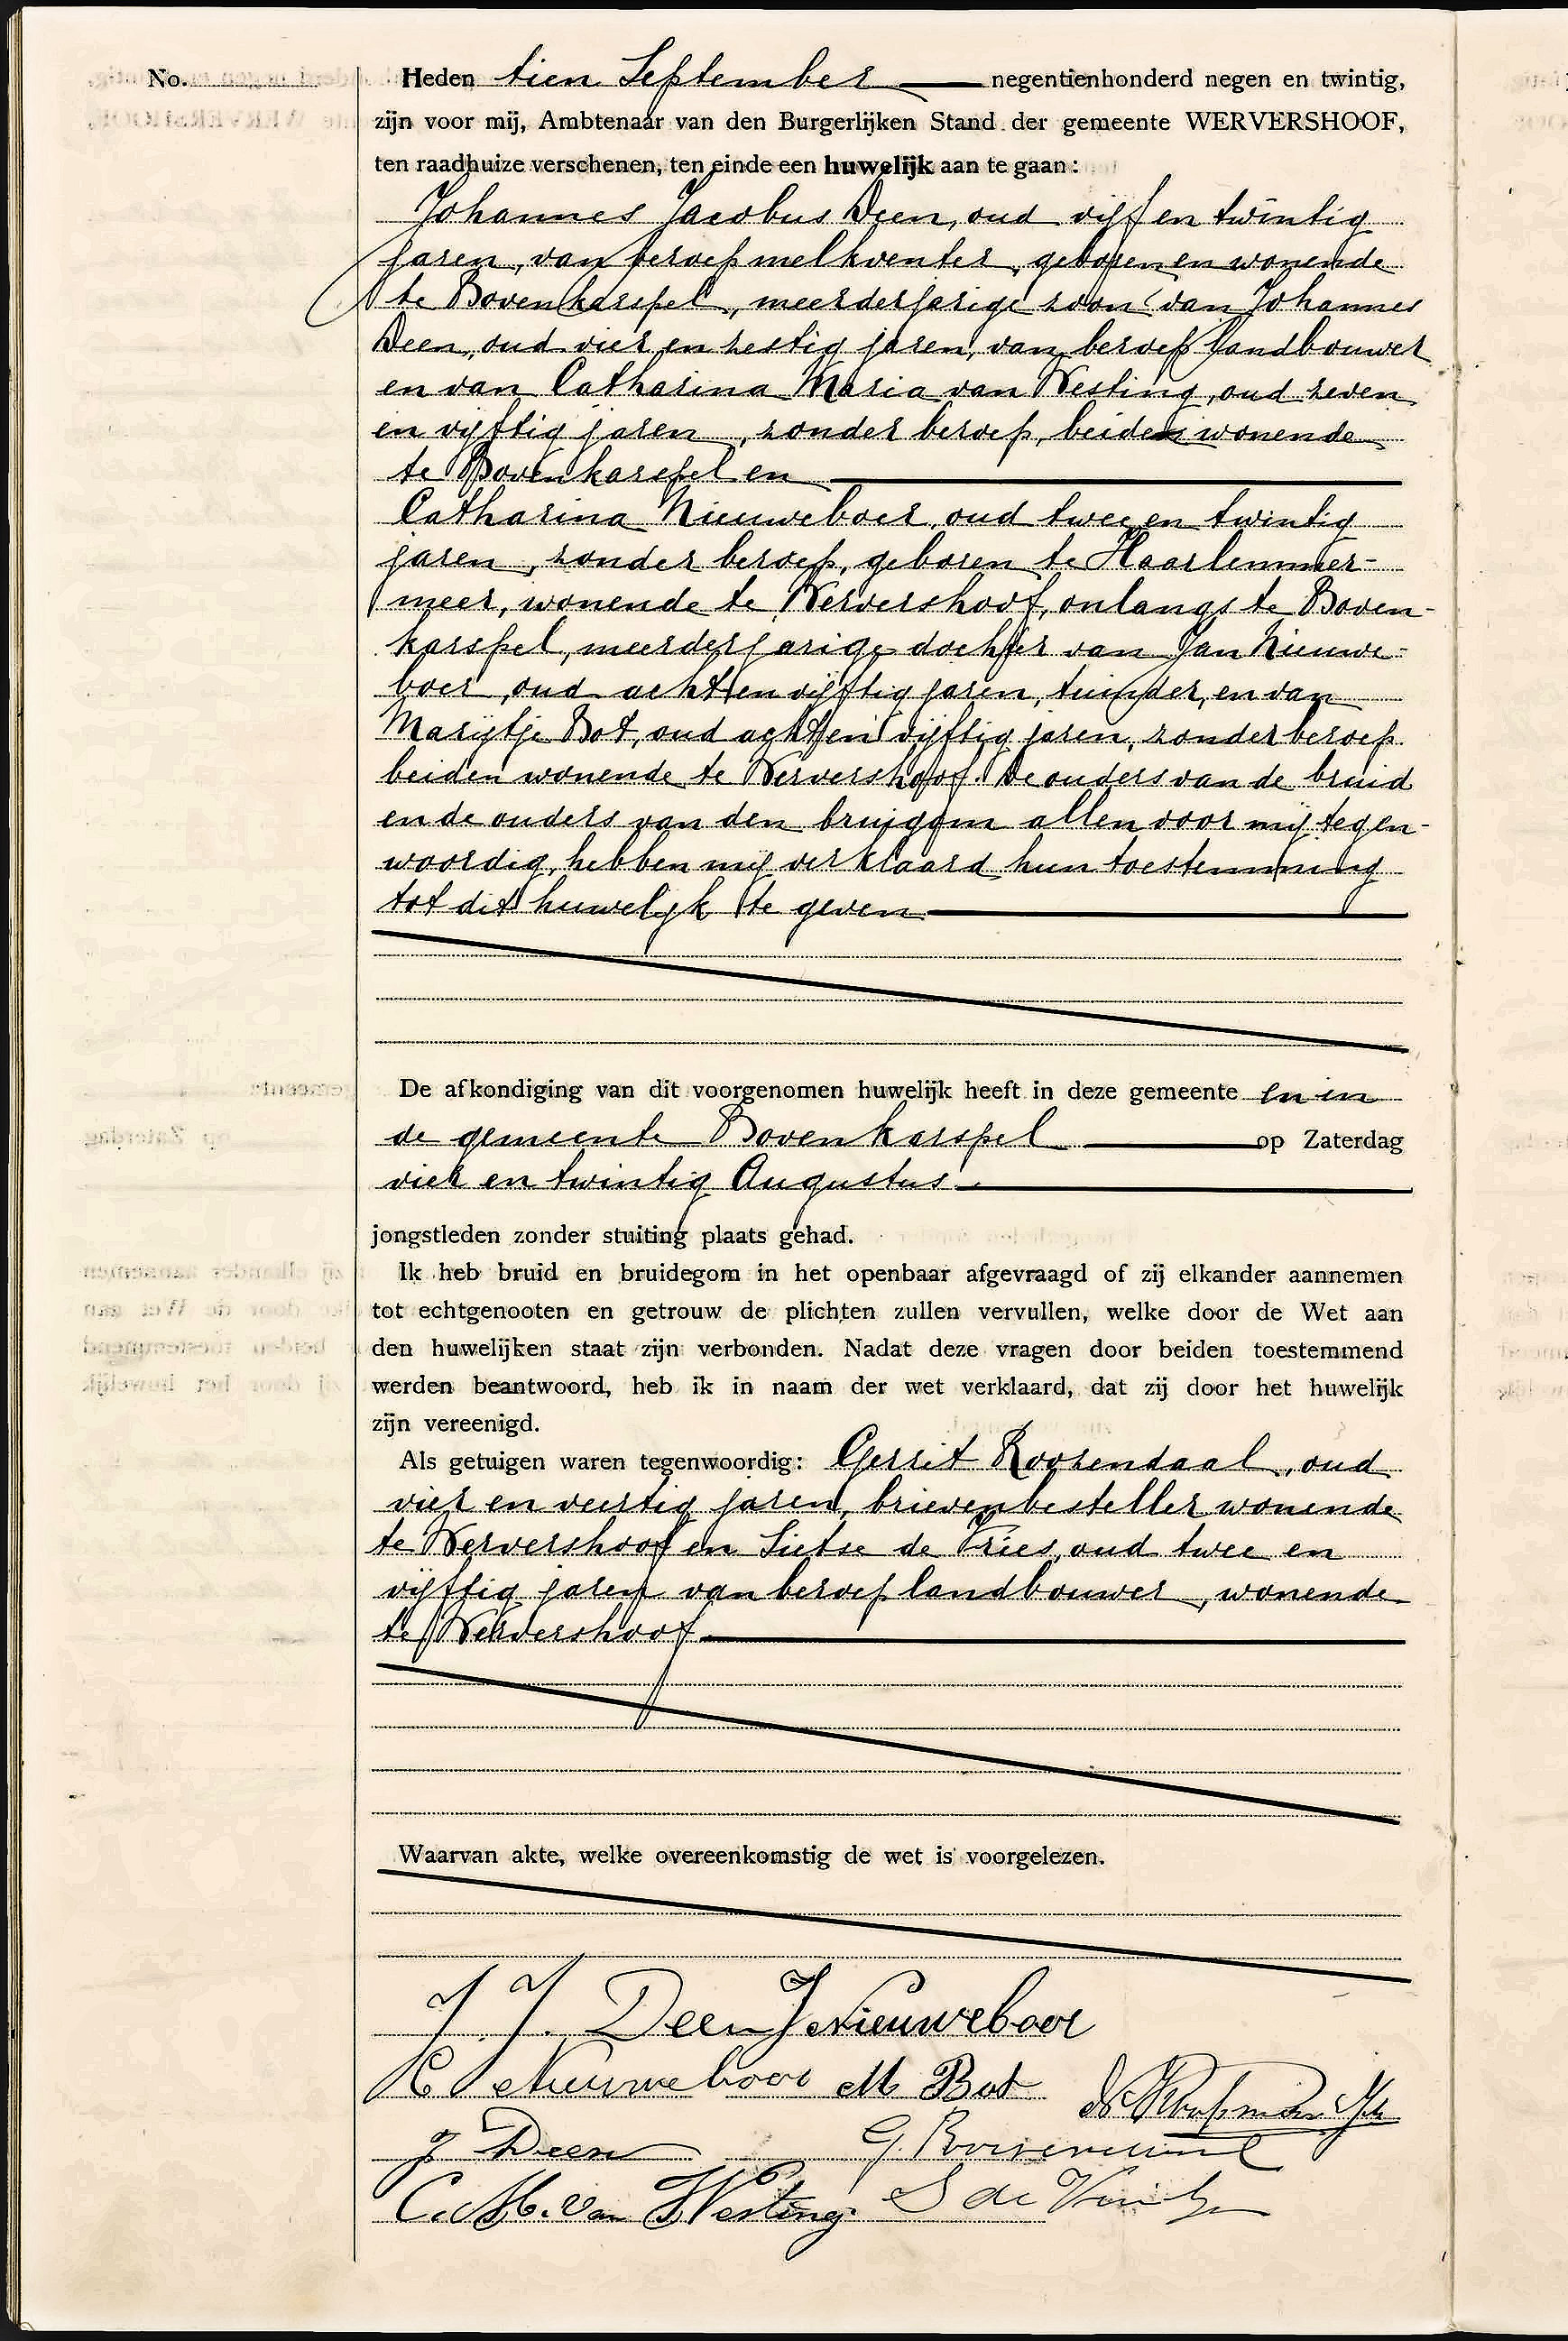 No.
Heden tien September negentienhonderd negen en twintig,
zijn voor mij, Ambtenaar van den Burgerlijken Stand der gemeente WERVERSHOOF,
ten raadhuize verschenen, ten einde een huwelijk aan te gaan:
Johannes Jacobus Deen, oud vijf en twintig
jaren, van beroep melkventer, geboren en wonende
te Bovenkarspel, meerderjarige zoon van Johannes
Deen, oud vier en zestig jaren, van beroep landbouwer
en van Catharina Maria van Westing, oud zeven
en vijftig jaren, zonder beroep, beiden wonende
te Bovenkarspel en
Catharina Nieuweboer, oud twee en twintig
jaren, zonder beroep, geboren te Haarlemmer-
meer, wonende te Wervershoof, onlangs te Boven-
karspel, meerderjarige dochter van Jan Nieuwe-
boer, oud acht en vijftig jaren, tuinder, en van
Marijtje Bot, oud acht en vijftig jaren, zonder beroep
beiden wonende te Wervershoof. De ouders van de bruid
en de ouders van den bruigom allen voor mij tegen-
woordig, hebben mij verklaard hun toestemming
tot dit huwelijk te geven
De afkondiging van dit voorgenomen huwelijk heeft in deze gemeente en in
de gemeente Bovenkarspel op Zaterdag
vier en twintig Augustus
jongstleden zonder stuiting plaats gehad.
Ik heb bruid en bruidegom in het openbaar afgevraagd of zij elkander aannemen
tot echtgenooten en getrouw de plichten zullen vervullen, welke door de Wet aan
den huwelijken staat zijn verbonden. Nadat deze vragen door beiden toestemmend
werden beantwoord, heb ik in naam der wet verklaard, dat zij door het huwelijk
zijn vereenigd.
Als getuigen waren tegenwoordig: Gerrit Roozendaal, oud
vier en veertig jaren, brievenbesteller wonende
te Wervershoof en Sietse de Vries, oud twee en
vijftig jaren van beroep landbouwer, wonende
te Wervershoof
Waarvan akte, welke overeenkomstig de wet is voorgelezen.
J. J. Deen J Nieuweboer
C Nieuweboer M Bot
J Deen G. Roozendaal
C. M. van Westing. S de Vries